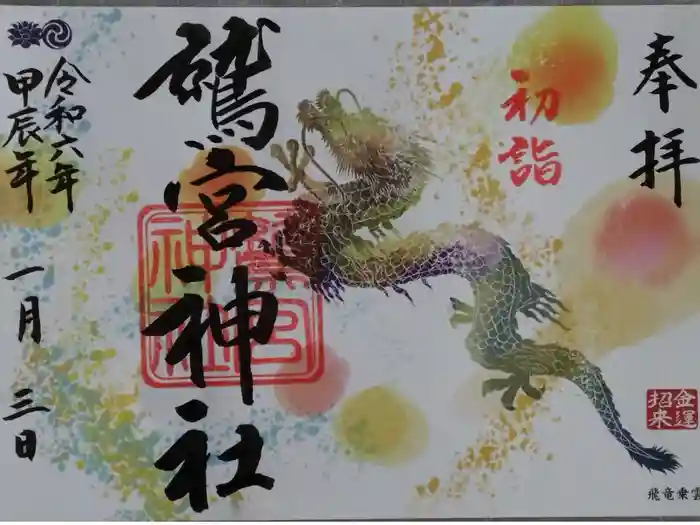 奉拝
初詣
鷲宮神社
令和六年
甲辰年
一月三日
金運
招来
飛竜乗雲